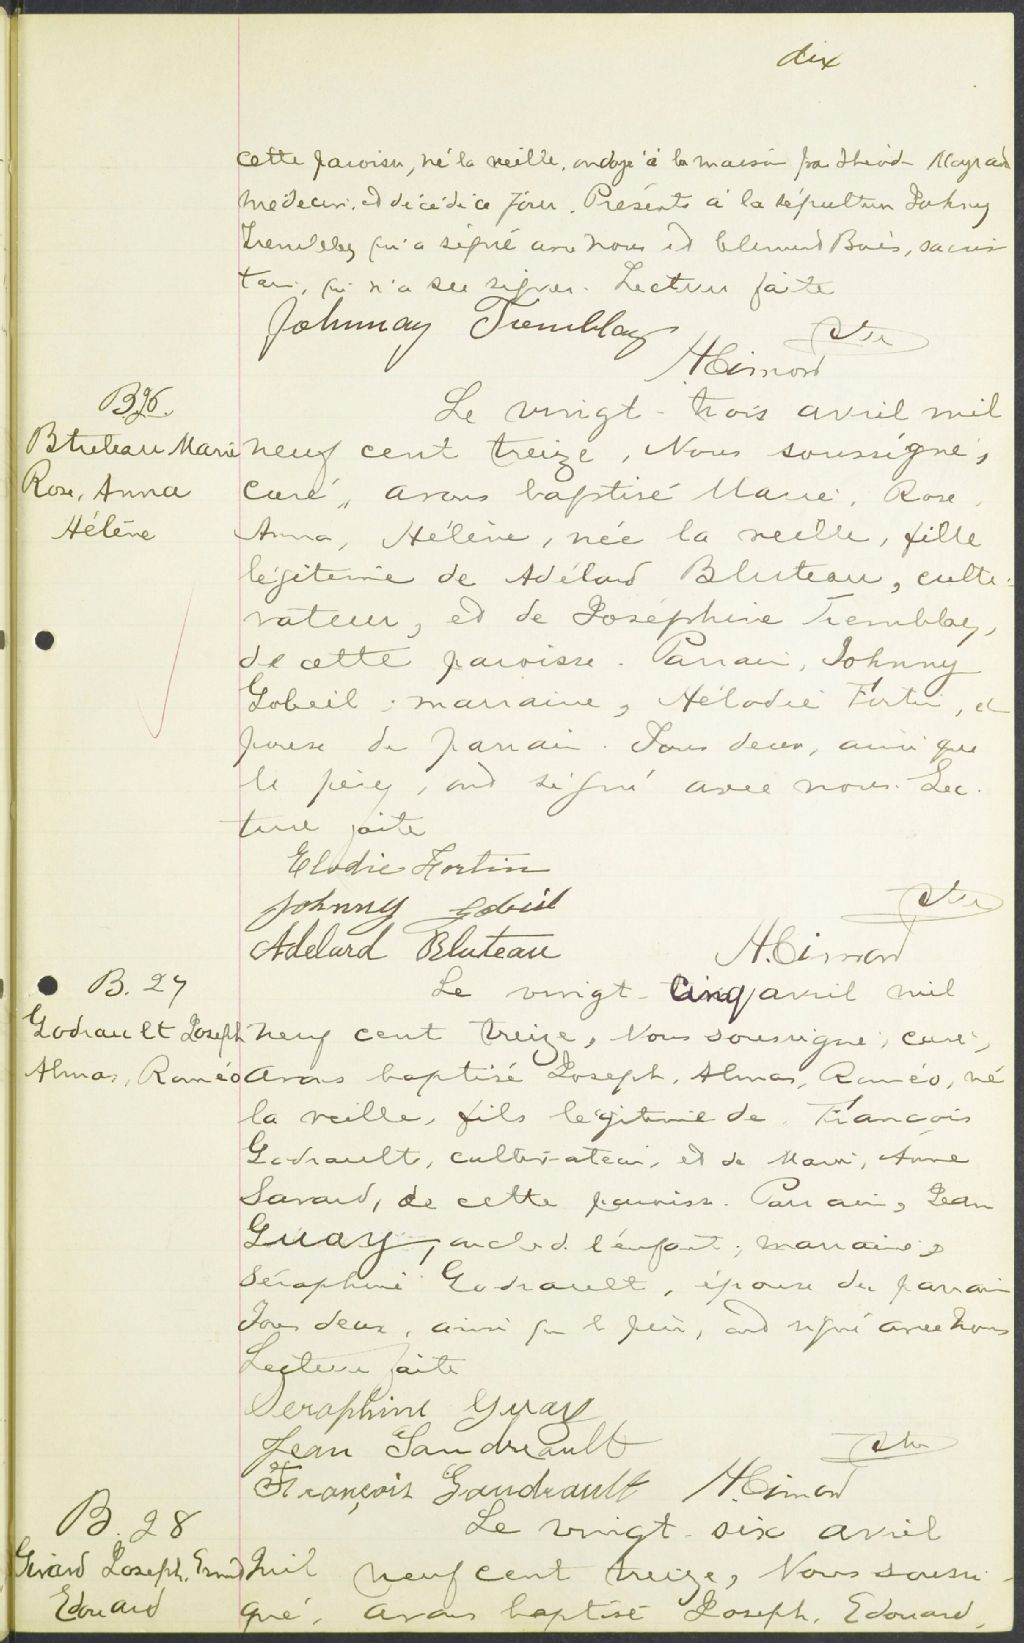 dix
cette paroisse, né la veille, ondoyé à la maison par
médecin, et décédé ce jour. Présents à la sépulture Johnny
Tremblay qui a signé avec nous et Clément Bois, sacris
tain, qui n'a su signer. Lecture faite
Johnnay Tremblay
H Cimon Ptre
B 26.
Bluteau Marie
Rose, Anna
Hélène
Le vingt-trois avril mil
neuf cent treize, Nous soussigné,
curé, avons baptisé Marie, Rose,
Anna, Hélène, née la veille, fille
légitime de Adélard Bluteau, culti-
vateur, et de Joséphine Tremblay,
de cette paroisse. Parrain, Johnny
Gobeil; marraine, Mélodie Fortin, é
pouse du parrain. Tous deux, ainsi que
le père, ont signé avec nous. Lec-
ture faite
Elodie Fortin
Johnny Gobeil
Adelard Bluteau
H. Cimon Ptre
B. 27
Godrault Joseph
Almas, Roméo
Le vingt-cinq avril mil
neuf cent treize, Nous soussigné, curé,
avons baptisé Joseph, Almas, Roméo, né
la veille, fils légitime de François
Godrault, cultivateur, et de Marie, Anne
Savard, de cette paroisse. Parrain, Jean
Guay, oncle de l'enfant; marraine,
Séraphine Godrault, épouse du parrain
Tous deux, ainsi que le père, ont signé avec nous
Lecture faite
Seraphine Guay
Jean Gaudreault
François Gaudreault
H. Cimon Ptre
B. 28
Girard Joseph,
Edouard
Le vingt-six avril
mil neuf cent treize, Nous soussi-
gné, avons baptisé Joseph, Edouard,